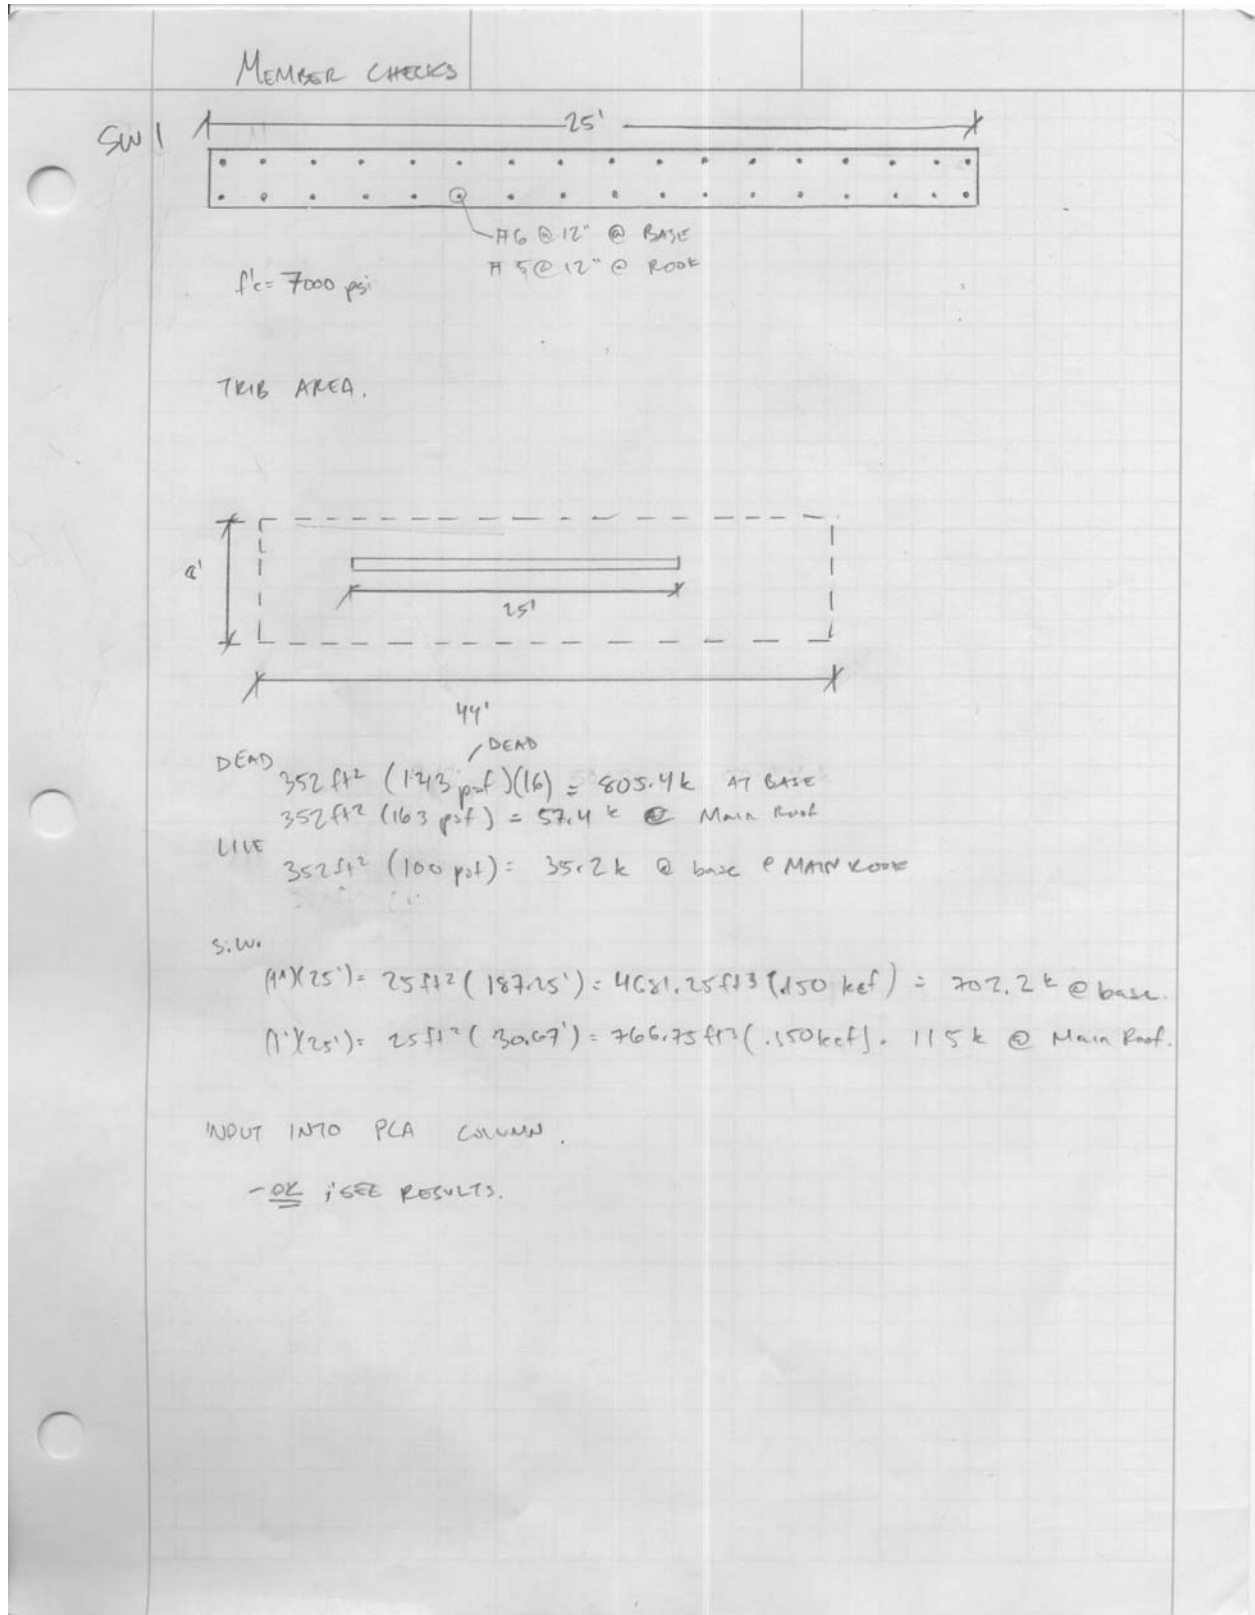 MEMBER CHECKS
SW 1
25'
#6 @ 12" @ BASE
#5 @ 12" @ ROOF
f'c = 7000 psi
TRIB AREA.
8'
25'
44'
DEAD
DEAD
352 ft² (143 psf)(16) = 805.4k AT BASE
352 ft² (163 psf) = 57.4 k @ Main Roof
LIVE
352 ft² (100 psf) = 35.2 k @ base @ MAIN ROOF
S.W.
(1')(25') = 25 ft² (187.25') = 4681.25 ft3 (.150 kcf) = 702.2 k @ base.
(1')(25') = 25 ft² (30.67') = 766.75 ft3 (.150 kcf). 115 k @ Main Roof.
INPUT INTO PCA COLUMN.
- OK ; SEE RESULTS.